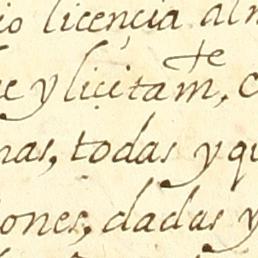 io licençia al
e y liçitam.te, c
nas, todas y qu
iones, dadas y